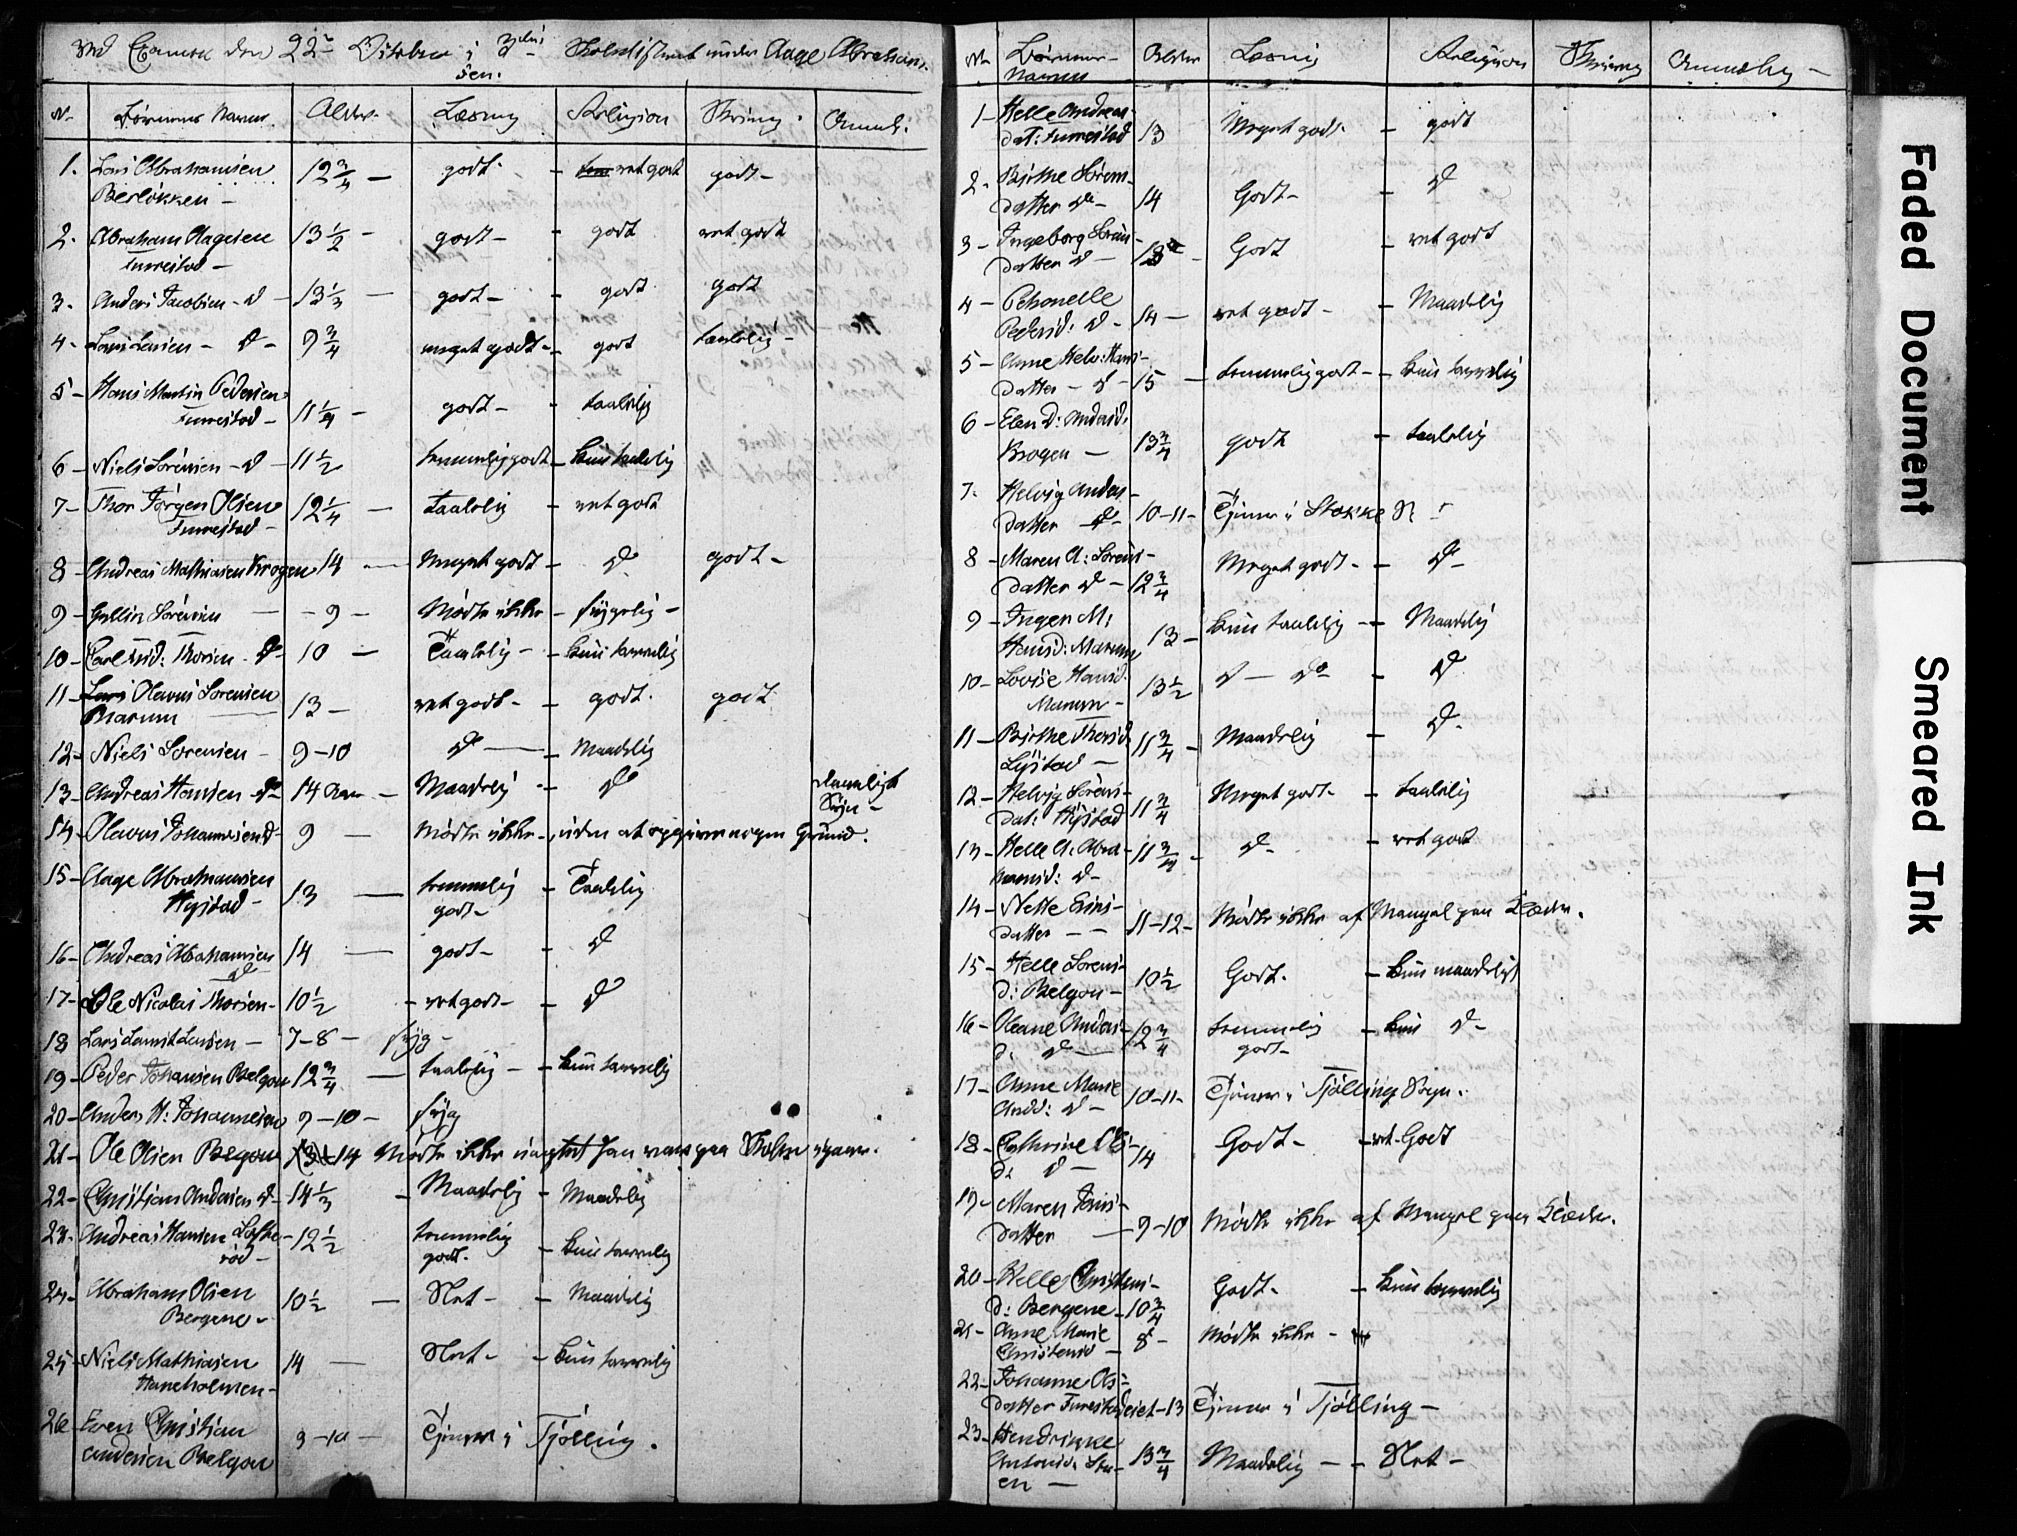 Ved Examen den 22de October i 3die Skoledistrict under Aage Abraham-
sen.
N. Börnenes Navne. Alder. Læsning Religion Skrivning. Anmærk.
1. Lars Abrahamsen 12 3/4 — godt. - ret godt godt -
Berlökken -
2. Abraham Aagesen 13 1/2 - godt - godt ret godt
Furrestad -
3. Anders Jacobsen - d - 13 1/3 — godt - - godt godt
4. Lars Larsen - d - 9 3/4 meget godt - godt taalelig -
5 - Hans Martin Pedersen
Furrestad - 11 1/4 - godt - - taalelig
6 - Niels Sörensen - d - 11 1/2 temmelig godt - kun taalelig
7 - Thor Jörgen Olsen 12 1/4 — taalelig - ret godt
Furrestad -
8 - Andreas Mathiasen Krogen 14 — Meget godt - d godt -
9 - Sörensen — - 9 - Mödte ikke - sygelig -
10 - Carl And: Thorsen - d - 10 — Taalelig - - kun temmelig
11 - Lars Olavus Sorensen 13 - ret godt - - godt. godt
Marum
12 - Niels Sorensen - 9-10 d — - Maadelig
13 - Andreas Hansen - d - 14 Aar - Maadelig - d daarligt
Syn -
14 - Olavus Johannesen d - 9 — Mödte ikke - uden at opgive nogen Grund.
15 - Aage Abrahamsen 13 — temmelig - Taalelig
Hystad - godt -
16 - Andreas Abrahamsen 14 — godt - - d
d
17 - Ole Nicolai Thorsen - 10 1/2 - ret godt - - d
18 Lars Laurits Larsen - 7-8 - syg -
19 - Peder Johansen Belgau 12 3/4 — taalelig - - kun temmelig
20 - Anders H: Johannesen 9-10 - syg
21 - Ole Olsen Begau 14 Mödte ikke uagtet han var paa Skolen igaar.
22 - Christian Andersen d - 14 1/3 - Maadelig - Maadelig
23 - Andreas Hansen Lofte- - 12 1/2 temmelig - kun temmelig
röd - godt.
24 - Abraham Olsen 10 1/2 — Slet - - Maadelig
Bergene -
25 - Niels Mathiasen 14 — Slet - - kun temmelig
Haneholmen -
26 Even Christian 9-10 - Tjener i Tjölling.
Andersen Belgau
N. Börnenes- Alder Læsning Religion Skrivning Anmærkn -
Navne
1 - Helle Andreas-
dat: Furrestad 13 Meget godt. - godt
2 - Birthe Sörens-
datter d - 14 Godt - - d
3 - Ingeborg Sorens-
datter d - 13 - Godt - ret godt
4 - Petronelle
Pedersd: d - 14 - ret godt - - Maadelig
5 - Anne Helv: Hans-
datter - d - 15 - temmelig godt - - kun temmelig
6 - Elen D: Andersd:
Krogen - 13 3/4 godt - taalelig
7. Helvig Anders-
datter d - 10-11 - Tjener i Stokke S
8 - Maren A: Sorens-
datter d - 12 3/4 Meget godt - - d -
9 - Inger M:
Hansd: Marum 13 - kun taalelig - - Maadelig
10 - Lovise Hansd. 13 1/2 d — do - d
Marum -
11 - Birthe Thorsd. 11 3/4 - Maadelig - d -
Lystad -
12 - Helvig Sörens-
dat: Hystad 11 3/4 Meget godt - - taalelig
13 - Helle A: Abra-
hamsd: d - 11 3/4 - d - - ret godt
14 - Nette
datter - - 11-12 - Mödte ikke af Mangel paa Klæder.
15 - Helle Sorens-
d: Belgau - 10 1/2 Godt. - kun maadeligt
16 - Oleane Anders-
d: d — 12 3/4 temmelig - kun d -
godt -
17 - Anne Marie
Andd: d - 10-11 - Tjener i Tjöllings Sogn.
18 - Cathrine
d: d - 14 Godt - - ret Godt
19 - Maren Jens-
datter — 9-10 Mödte ikke af Mangel paa Klæder.
20 - Helle Christens-
d: Bergene - 10 3/4 Godt - - kun temmelig
21 - Anne Marie
Christensd - 8 - Mödte ikke -
22 - Johanne
datter Furestadeiet - 13 Tjener i Tjölling -
23 - Hendrikke
13 3/4 Maadelig - - Slet -
en -
Faded Document
Smeared Ink